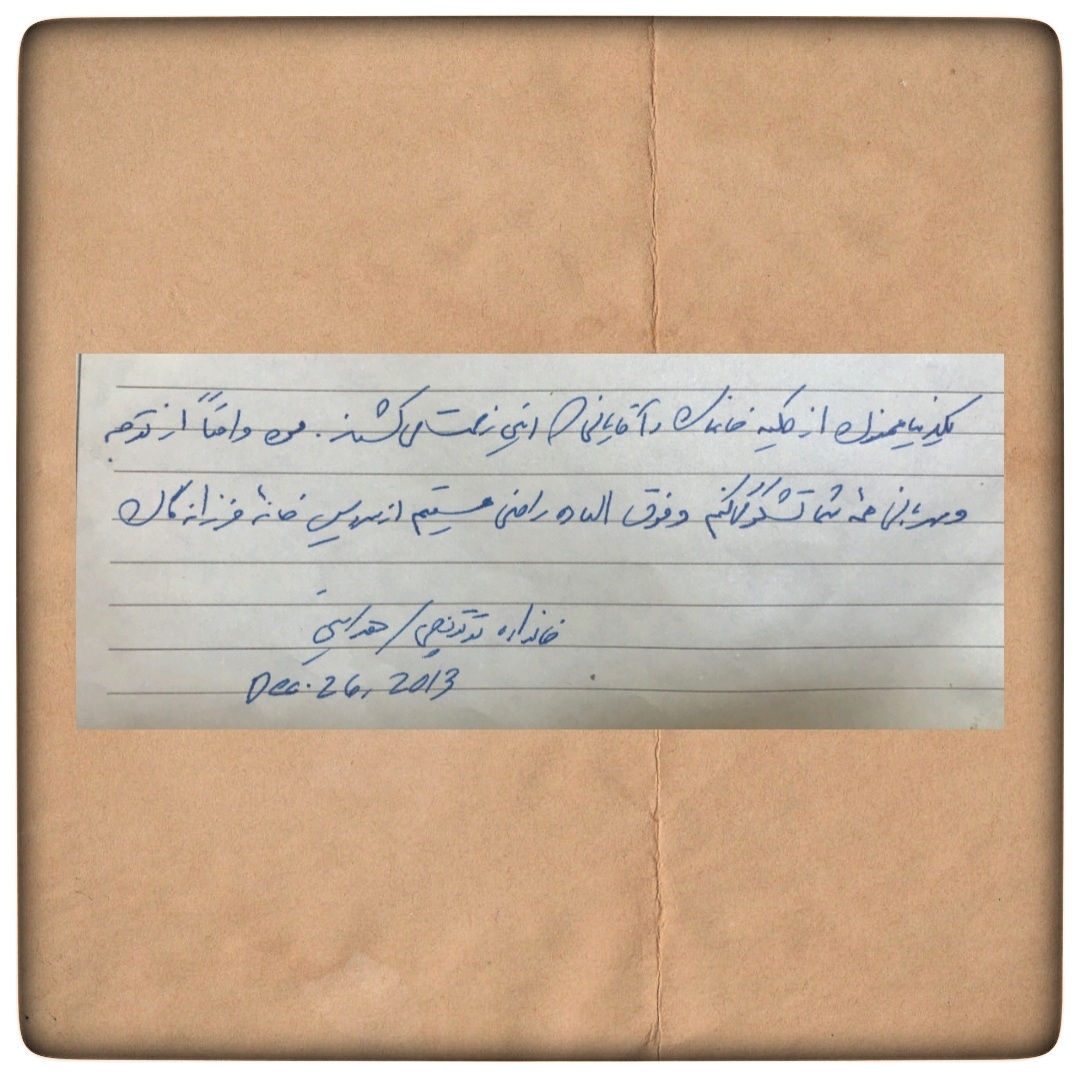 یکدنیا ممنون از کلیه خانمان و آقایانی که زحمت می‌کشند. من واقعاً از توجه
و مهربانی همه شما تشکر می‌کنم و فوق العاده راضی هستیم از سرویس خانهٔ فرزانه‌گان
خانواده / هدایتی
Dec. 26, 2013